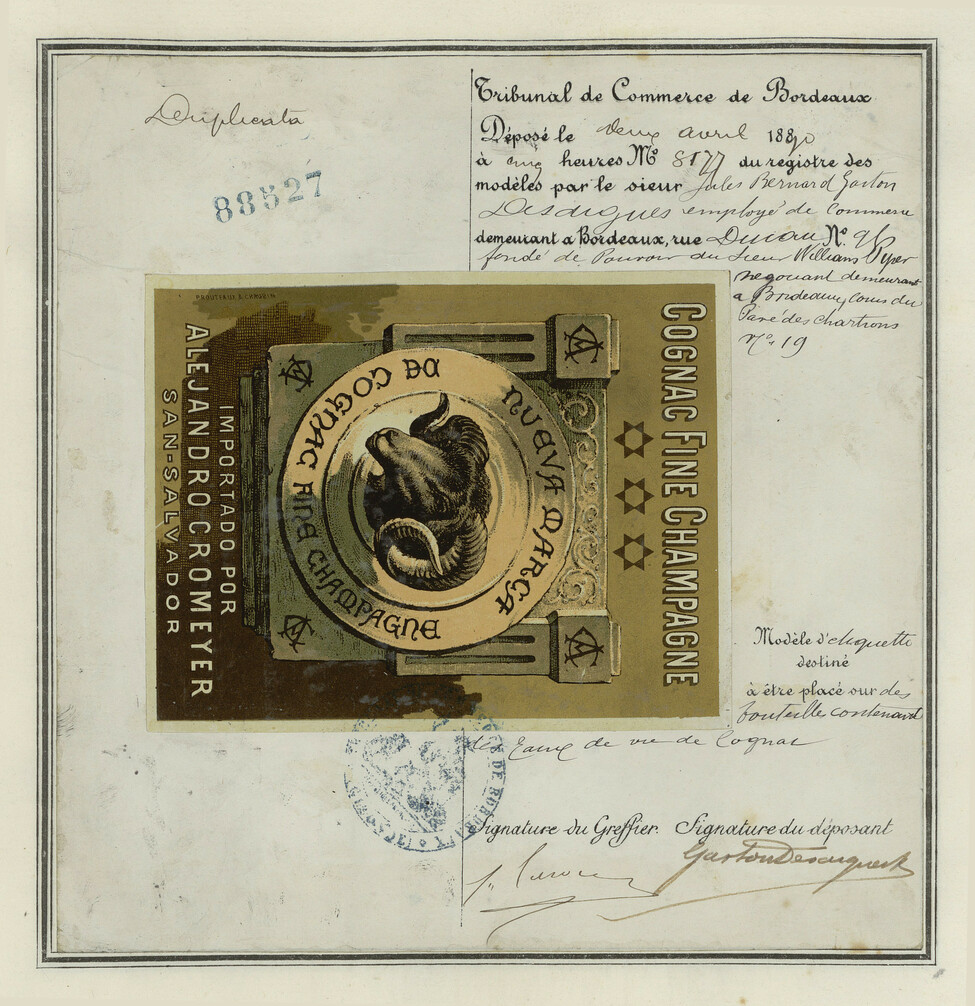 Duplicata
88527
Tribunal de Commerce de Bordeaux
Déposé le deux avril 1880
à cinq heures No 8177 du registre des
modèles par le sieur Jules Bernard Gaston
employé de commerce
demeurant à Bordeaux, rue No. 96
fondé de Pouvoir du Sieur William
negociant demeurant
a Bordeaux, Cours du
Pavé des chartrons
No. 19
COGNAC FINE CHAMPAGNE
NUEVA MARCA
DA COGNAC FINE CHAMPAGNE
IMPORTADO POR
ALEJANDRO CROMEYER
SAN-SALVADOR
Modèle d'etiquette
destiné
à être placé sur des
bouteille contenant
des Eaux de vie de Cognac
DE BORDEAUX
Signature du Greffier. Signature du déposant